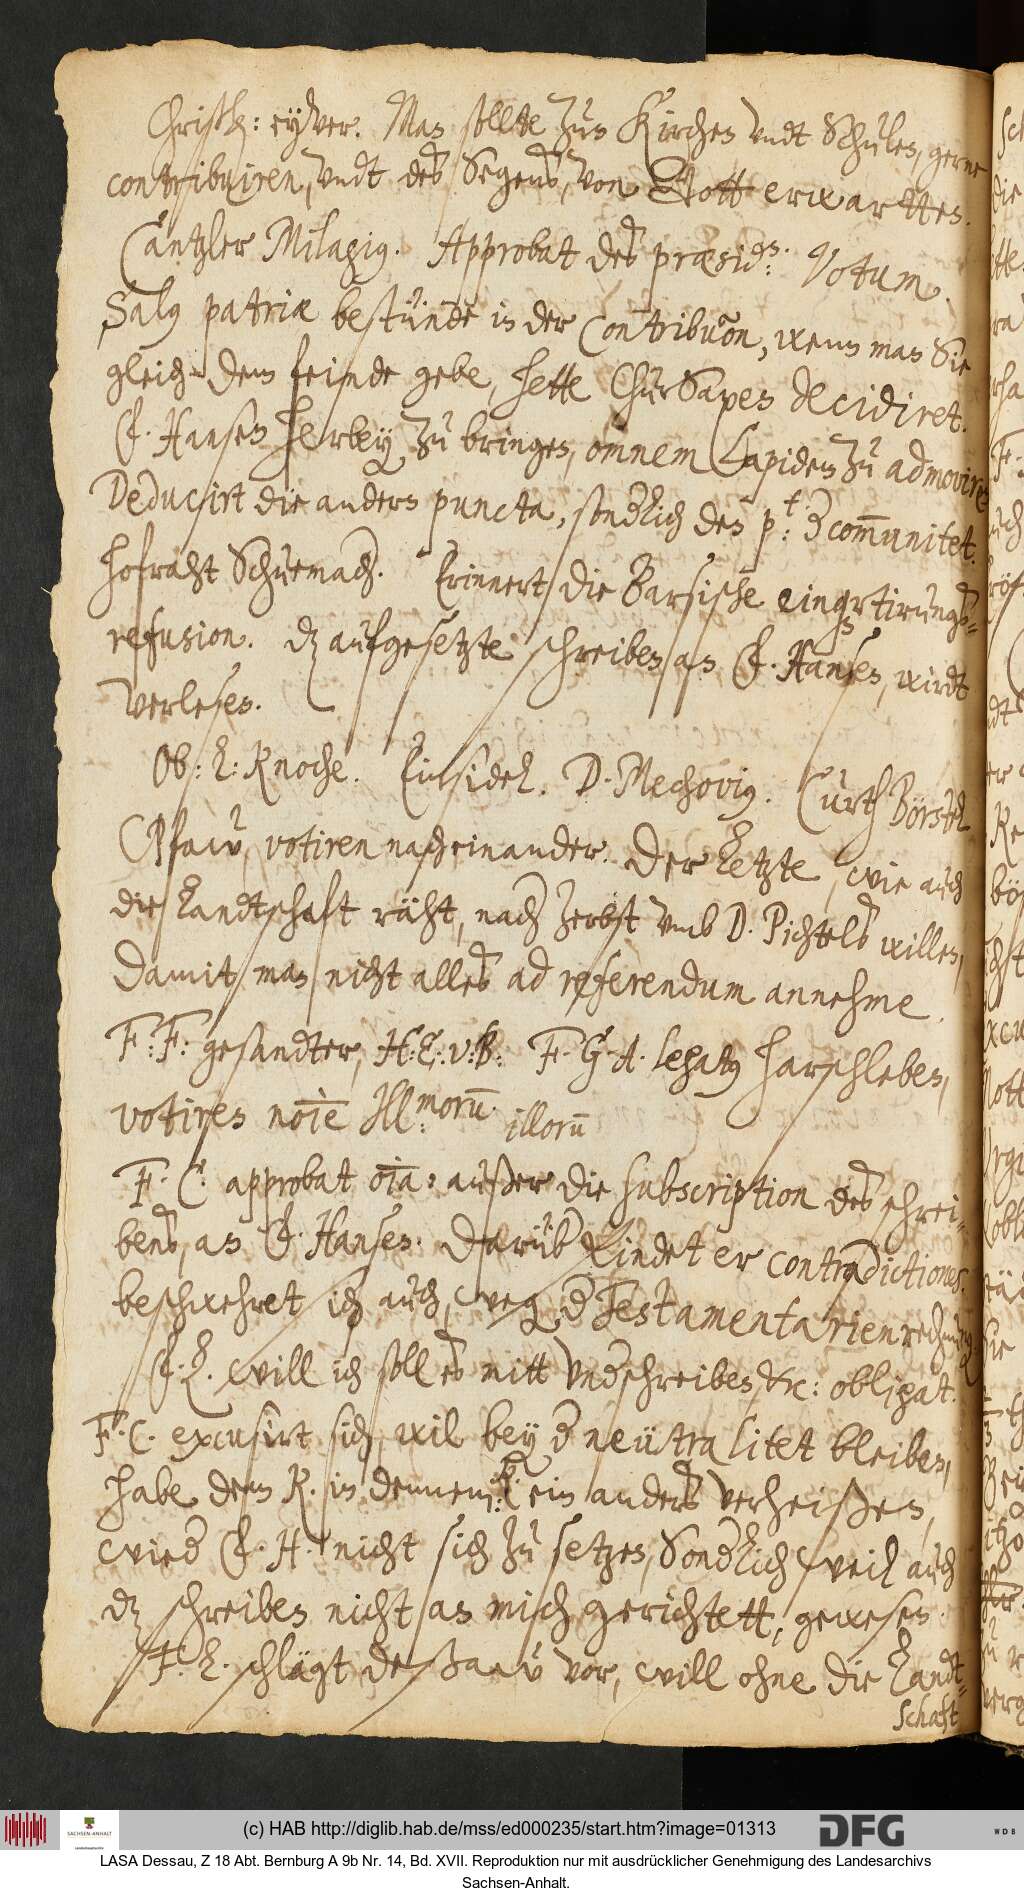 Christl: eyver. Man sollte zun Kirchen undt Schulen, gerne
contribuiren, undt des Segens, von Gott erwartten.
Cantzler Milagius. Approbat des præsid: Votum.
Salus patriæ bestünde in der Contribuon, wenn man Sie
gleich dem feinde gebe, hette ChurSaxen decidiret.
F. Hansen herbey zu bringen, omnem Lapidem zu admoviren
Deducirt die andern puncta, sonderlich den pt: communitet.
Hofraht Schuemach. Erinnert die Barsische einqrtirungs-
refusion. dz aufgesetzte schreiben an F. Hansen, wirdt
verlesen.
Ob: L: Knoche. Einsidel. D. Mechovius. Curth Börstel
Pfau, votiren nacheinander. Der Letzte, wie auch
die Landtschaft räht, nach Zerbst umb D. Pichtels willen,
damit man nicht alles ad referendum annehme.
F: F: gesandter, H: E: v: B: F. G. A. Legatus Harschleben,
votiren noie Ill:morum illorum
F. C. approbat oia: außer die subscription des schrei-
bens, an F. Hansen. Darüb findet er contradictiones.
beschwehret sich auch, weg d Testamentarien rechnung
F. L. will ich soll es mitt underschreiben, &c: obligat.
F. C. excusirt sich, wil bey d neütralitet bleiben,
habe dem K. in Dennem:k ein anders verheißen,
wied F. H. nicht sich zu setzen, Sonderlich weil auch
dz schreiben nicht an mich gerichtett, gewesen.
F. L. schlägt deßaw vor, will ohne die Landt-
schaft
(c) HAB http://diglib.hab.de/mss/ed000235/start.htm?image=01313
SACHSEN-ANHALT
DFG
WDB
LASA Dessau, Z 18 Abt. Bernburg A 9b Nr. 14, Bd. XVII. Reproduktion nur mit ausdrücklicher Genehmigung des Landesarchivs
Sachsen-Anhalt.